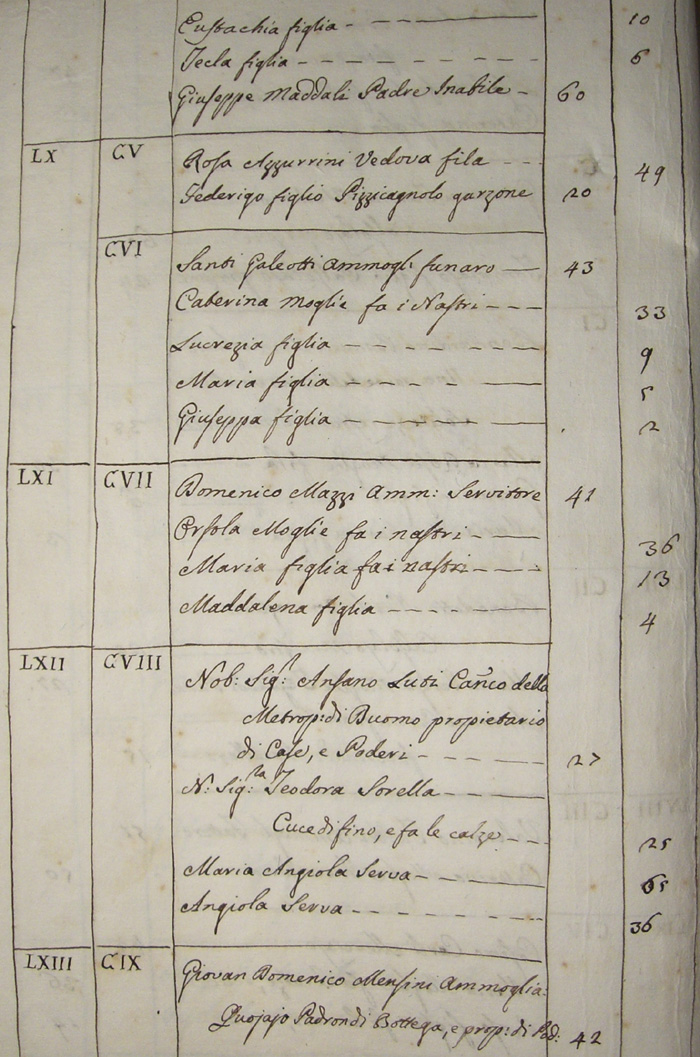 Eustachia figlia - — 10
Tecla figlia - - - - - - - 6
Giuseppe Maddali Padre Inabile - 60
LX CV Rosa Azzurrini Vedova fila - - - 49
Federigo figlio Pizzicagnolo garzone 20
CVI Santi Galeotti Ammogli: funaro — 43
Caterina Moglie fa i Nastri - - - 33
Lucrezia figlia - - - - - - - 9
Maria figlia - - - - — 5
Giuseppa figlia - - - - — 2
LXI CVII Domenico Mazzi Amm: Servitore 41
Orsola Moglie fa i nastri - — 36
Maria figlia fa i nastri - - - - 13
Maddalena figlia - - - - — 4
LXII CVIII Nob: Sig:r Ansano Luti Can:co della
Metrop: di Duomo propietario
di Case, e Poderi - - - - — 27
N: Sig:ra Teodora Sorella - - - —
Cuce di fino, e fa le calze - - - 25
Maria Angiola Serva - - — 65
Angiola Serva - - - - - - - 36
LXIII CIX Giovan Domenico Mensini Ammoglia:
Quojajo Padron di Bottega, e prop: di Pod: 42